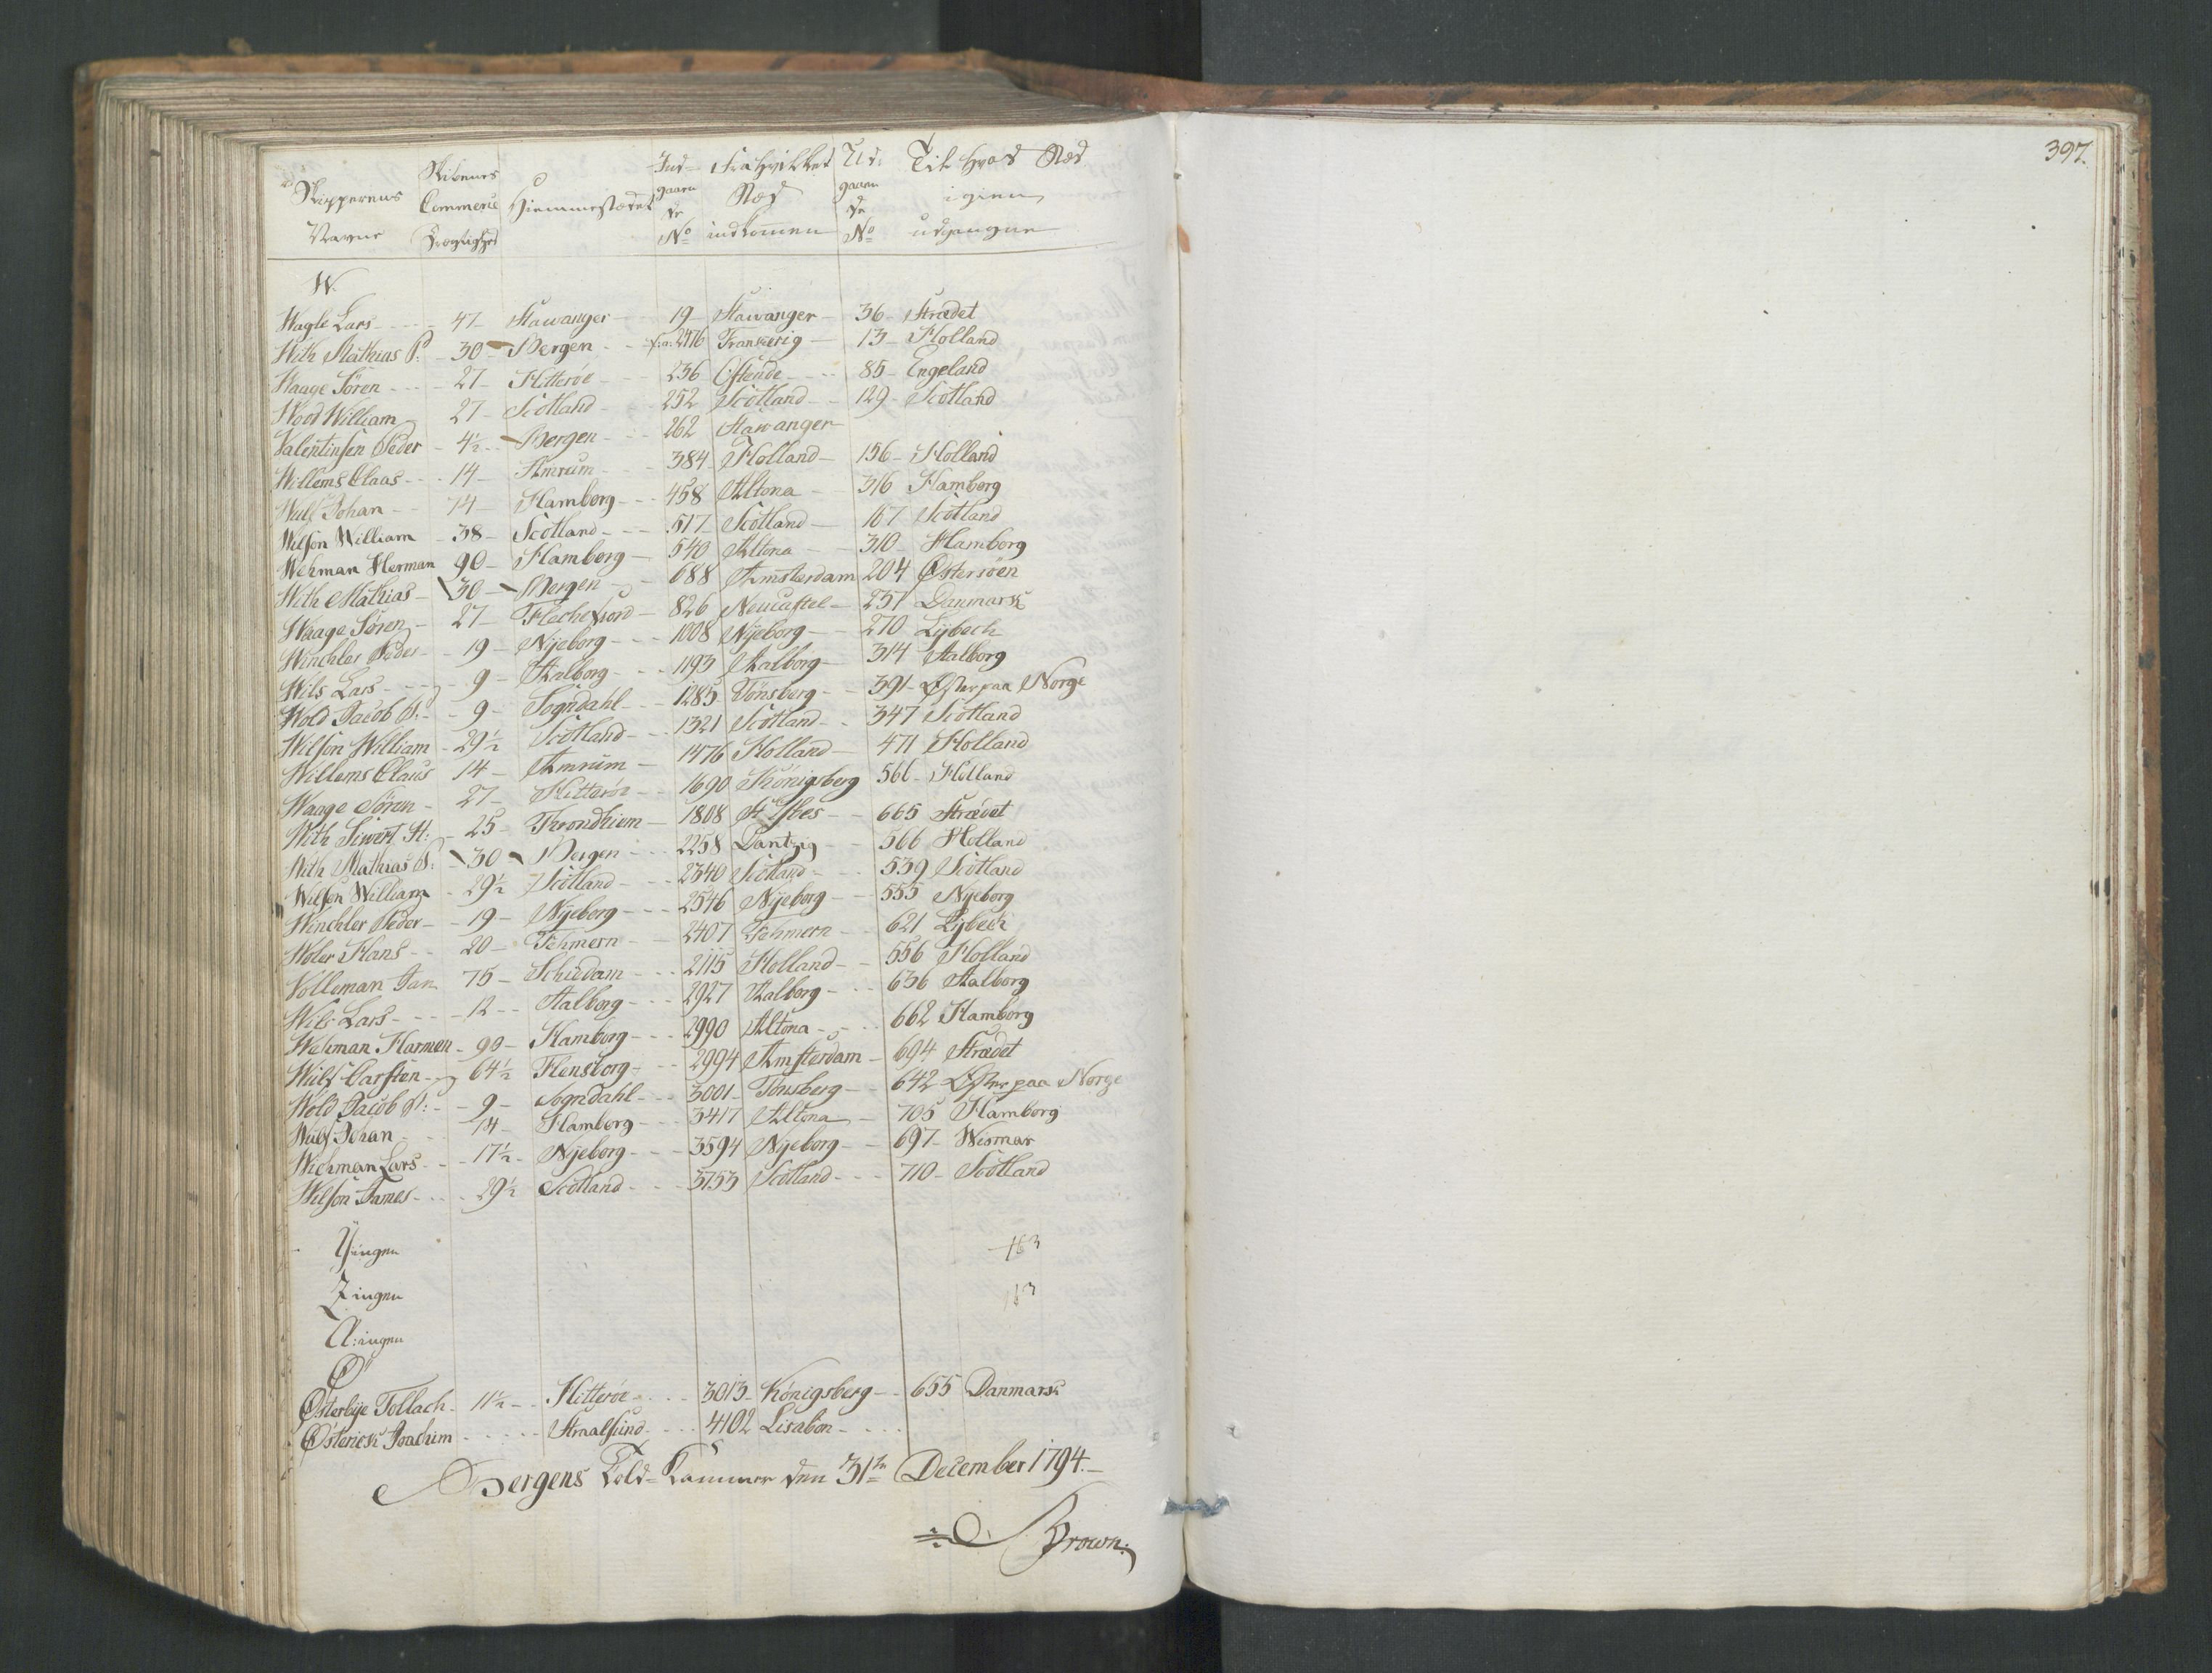 397.
Skipperens Navne | Skibenes Commerce Drægtighed | Hiemmestædet | Ind- gaaen de No | Fra hvilket Stæd indkommen | Ud- gaaen de No | Til hvad Stæd igien udgangne
W.
Wagle Lars - 47 - Stawanger - 19 - Stawanger - 36 - Strædet
With Mathias P: - 30 - Bergen - f: a: 2476 Frankerig - 13 - Holland
Waage Sören - 27 - Hitteröe - 236 Ostende - 85 - Engeland
Wood William 27 - Scotland - 252 Scotland - 129 - Scotland
Valentinsen Peder - 4½ - Bergen - 262 Stawanger
Willems Claas - 14 - Amrum - 384 Holland - 156 - Holland
Wulf Johan - 14 - Hamborg - 458 Altona - 316 Hamborg
Wilson William - 38 - Scotland - 517 Scotland - 167 Scotland
Wehman Herman 90 - Hamborg - 540 Altona - 310 - Hamborg
With Mathias - 30 - Bergen - 688 Amsterdam 204 Østersöen
Waage Sören - 27 - Flechefiord - 826 Neucastel - 237 Danmark
Winchler Peder - 19 - Nyeborg - 1008 Nyeborg - 270 Lybech
Wils Lars - 9 - Aalborg - 1193 Aalborg - 314 Aalborg
Wold Jacob P: - 9 - Sogndahl - 1285 Tönsberg - 391 - Øster paa Norge
Wilson William - 29½ Scotland - 1321 Scotland - 347 Scotland
Willems Claus 14 - Amrum - 1476 Holland - 471 Holland
Waage Sören - 27 - Hitteröe - 1690 Königsberg 566 - Holland
With Siwert H: - 25 - Trondhiem - 1808 St Ybes - 665 Strædet
With Mathias P: - 30 - Bergen - 2258 Dantzig - 566 Holland
Wilson William - 29½ Scotland - 2340 Scotland - 539 Scotland
Winchler Peder - 19 - Nyeborg - 2546 Nyeborg - 555 Nyeborg
Woler Hans - 20 - Fehmern - 2407 Fehmern - 621 Lybech
Volleman Jan 75 - Schiedam - 2115 Holland - 556 Holland
Wils Lars - 12 - Aalborg - 2927 Aalborg - 636 Aalborg
Wehman Harmen - 90 - Hamborg - 2990 Altona - 662 Hamborg
Wulf Carsten - 64½ Flensborg - 2994 Amsterdam - 694 Strædet
Wold Jacob P: - 9 - Sogndahl - 3001 - Tönsberg - 642 - Øster paa Norge
Wulf Johan 14 - Hamborg - 3417 Altona - 705 Hamborg
Wichman Lars - 17½ - Nyeborg - 3594 Nyeborg - 697 - Wismar
Wilson James - 29½ Scotland - 3753 Scotland - 710 - Scotland
Y ingen
Z ingen
Æ: ingen
Ø
Østerbye Tollach - 11½ - Hitteröe - 3013 - Königsberg - 655 Danmark
Østerich Joachim - Straalsund - 4102 Lisabon -
Bergens Told-Kammer den 31te December 1794. -
Brown.